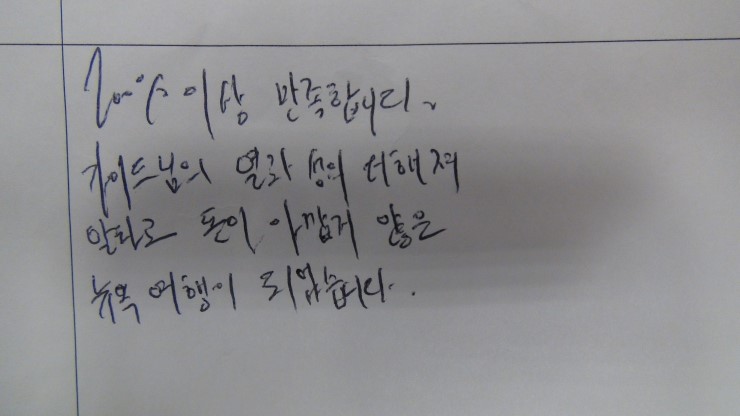 200% 이상 만족합니다.
가이드님의 열과 성의 더해져
말 그대로 돈이 아깝지 않은
뉴욕 여행이 되었습니다.